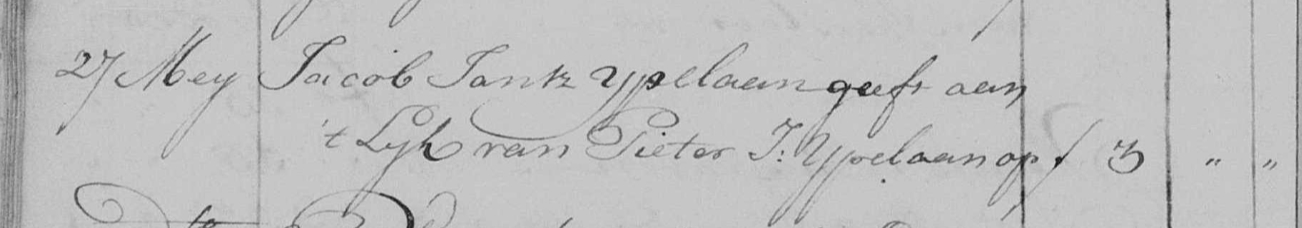 27 Mey Jacob Jantz Ypelaan geeft aan
't Lyk van Pieter J: Ypelaan op f 3 " "